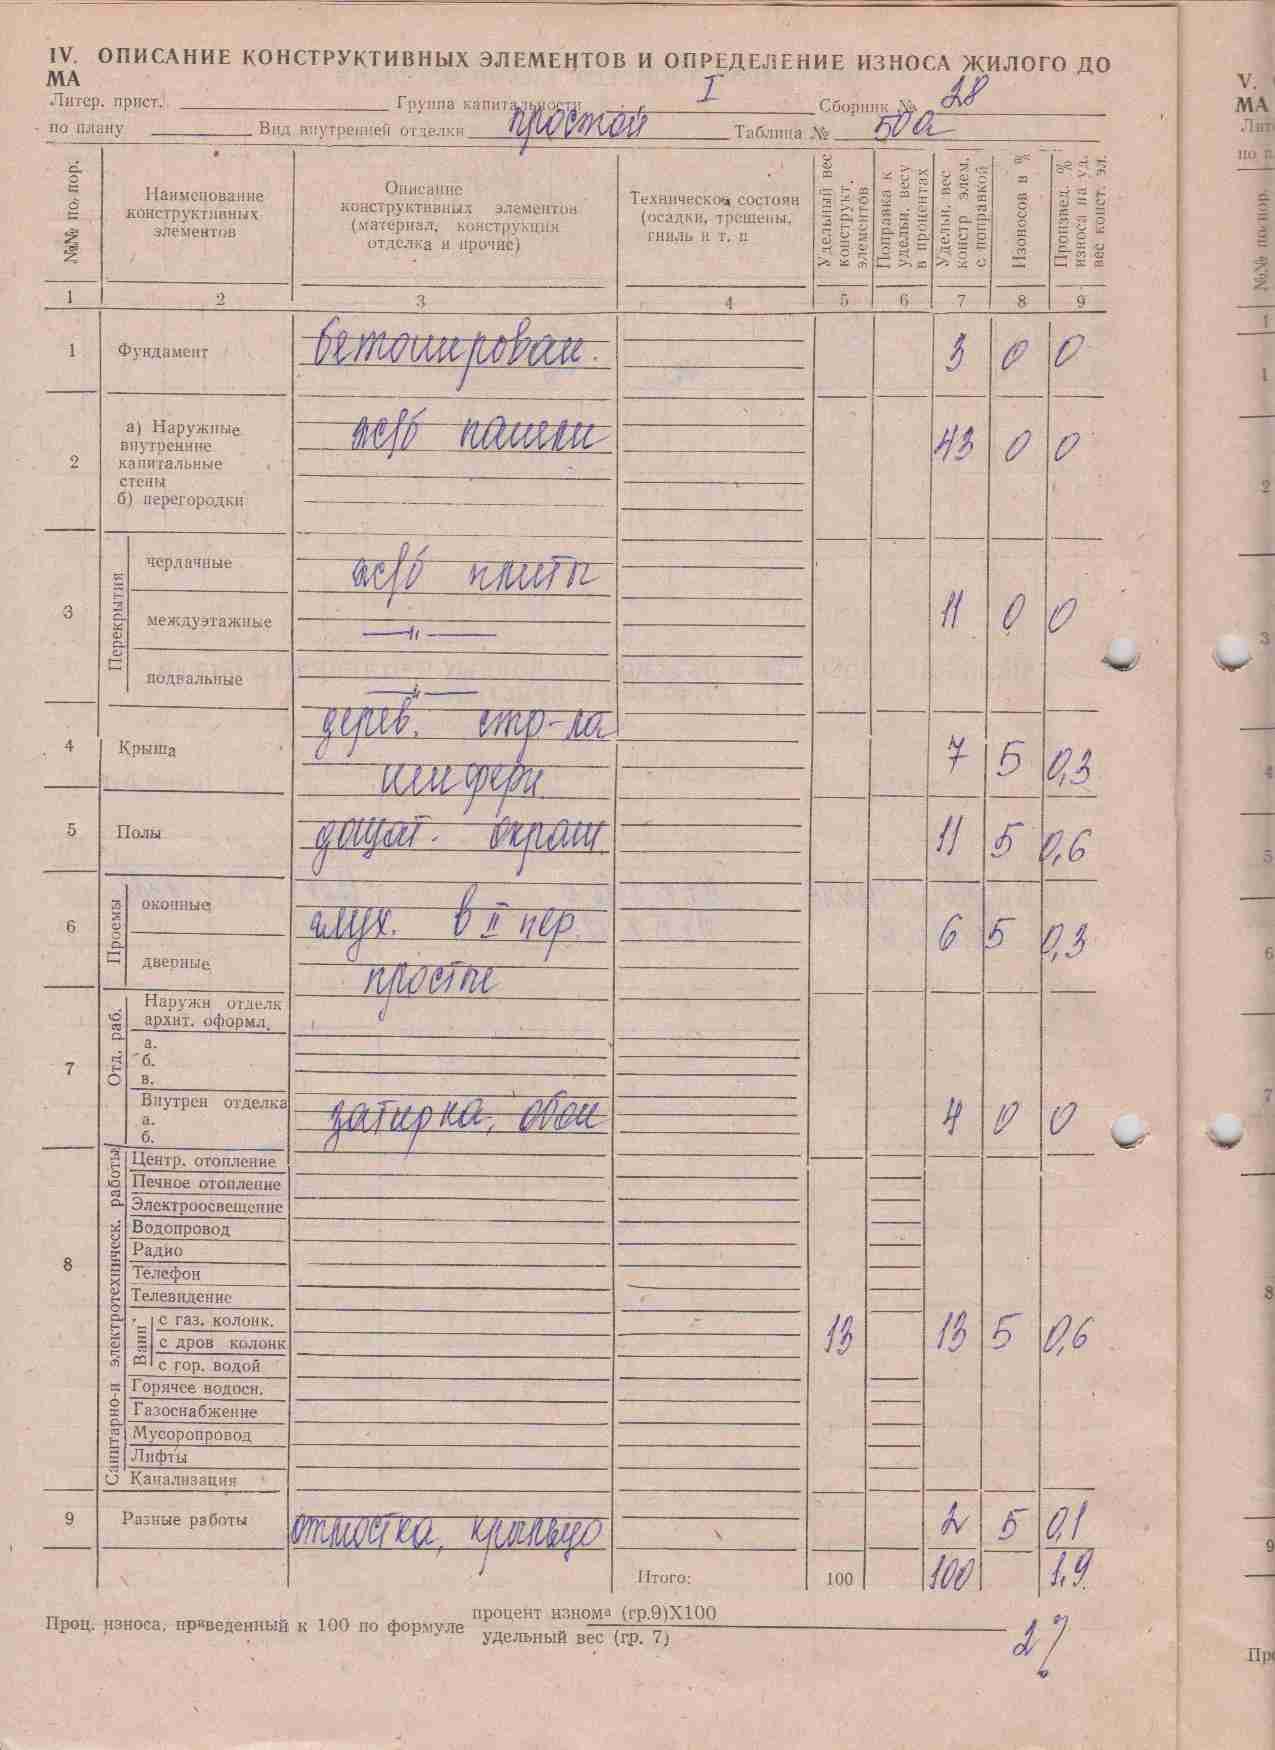 IV. ОПИСАНИЕ КОНСТРУКТИВНЫХ ЭЛЕМЕНТОВ И ОПРЕДЕЛЕНИЕ ИЗНОСА ЖИЛОГО ДО
МА
Литер. прист. Группа капитальности I Сборник № 28
по плану Вид внутренней отделки простой Таблица № 50а
№№ по. пор.
Наименование
конструктивных
элементов
Описание
конструктивных элементов
(материал, конструкция
отделка и прочие)
Техническое состоян
(осадки, трещены,
гниль и т. п
Удельный вес
конструкт.
элементов
Поправка к
удельн. весу
в процентах
Удельн. вес
констр элем.
с поправкой
Изоносов в %
Произвед. %
износа на уд.
вес конст. эл.
1 2 3 4 5 6 7 8 9
1 Фундамент бетонирован. 3 0 0
2 а) Наружные
внутренние
капитальные
стены
б) перегородки
ж/б панели 43 0 0
3 Перекрытия
чердачные ж/б плиты
междуэтажные —〃— 11 0 0
подвальные —〃—
4 Крыша дерев. стр-ла
шифери 7 5 0,3
5 Полы дощат. окраш. 11 5 0,6
6 Проемы
оконные глух. в II пер. 6 5 0,3
дверные простые
7 Отд. раб.
Наружн отделк
архит. оформл.
а.
б.
в.
Внутрен отделка
а. затирка, обои 4 0 0
б.
8 Санитарно-и электротехническ. работы
Центр. отопление
Печное отопление
Электроосвещение
Водопровод
Радио
Телефон
Телевидение
Ванн
с газ. колонк.
с дров колонк 13 13 5 0,6
с гор. водой
Горячее водосн.
Газоснабжение
Мусоропровод
Лифты
Канализация
9 Разные работы отмостка, крыльцо 2 5 0,1
Итого: 100 100 1,9
Проц. износа, приведенный к 100 по формуле процент изном (гр.9)X100
удельный вес (гр. 7)
2%
V.
МА
Лите
по п
№№ по пор.
1
1
2
3
4
5
6
7
8
9
Про